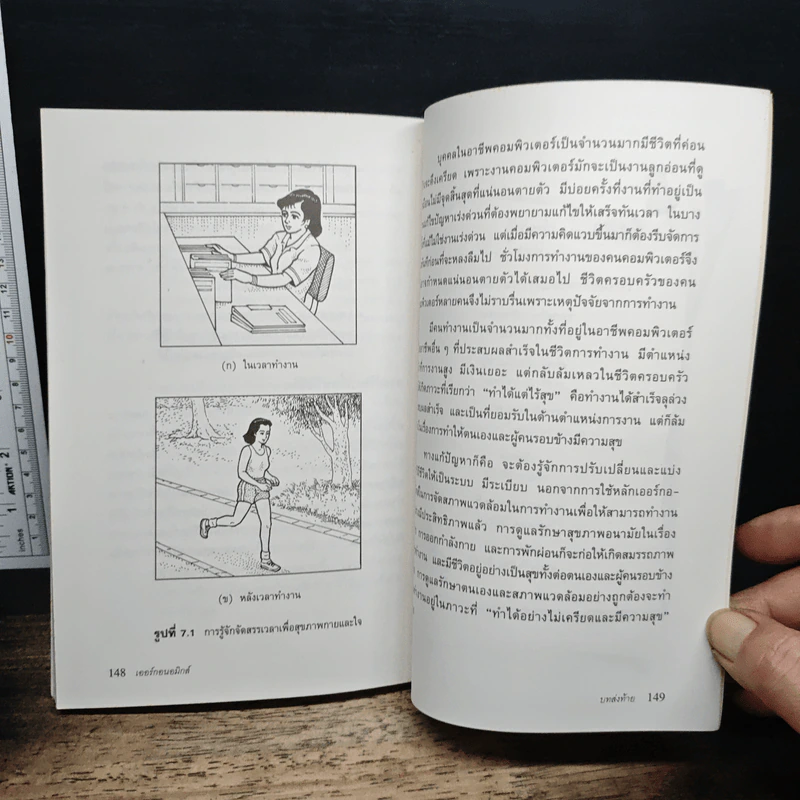 (ก) ในเวลาทำงาน
(ข) หลังเวลาทำงาน
รูปที่ 7.1 การรู้จักจัดสรรเวลาเพื่อสุขภาพกายและใจ
148 เออร์กอนอมิกส์
บุคคลในอาชีพคอมพิวเตอร์เป็นจำนวนมากมีชีวิตที่ค่อน
เพราะงานคอมพิวเตอร์มักจะเป็นงานลูกอ่อนที่ดู
ไม่มีจุดสิ้นสุดที่แน่นอนตายตัว มีบ่อยครั้งที่งานที่ทำอยู่เป็น
แก้ไขปัญหาเร่งด่วนที่ต้องพยายามแก้ไขให้เสร็จทันเวลา ในบาง
ไม่ใช่งานเร่งด่วน แต่เมื่อมีความคิดแวบขึ้นมาก็ต้องรีบจัดการ
ก่อนที่จะหลงลืมไป ชั่วโมงการทำงานของคนคอมพิวเตอร์จึง
กำหนดแน่นอนตายตัวได้เสมอไป ชีวิตครอบครัวของคน
หลายคนจึงไม่ราบรื่นเพราะเหตุปัจจัยจากการทำงาน
มีคนทำงานเป็นจำนวนมากทั้งที่อยู่ในอาชีพคอมพิวเตอร์
อื่น ๆ ที่ประสบผลสำเร็จในชีวิตการทำงาน มีตำแหน่ง
การงานสูง มีเงินเยอะ แต่กลับล้มเหลวในชีวิตครอบครัว
ภาวะที่เรียกว่า “ทำได้แต่ไร้สุข” คือทำงานได้สำเร็จลุล่วง
สำเร็จ และเป็นที่ยอมรับในด้านตำแหน่งการงาน แต่ก็ล้ม
เรื่องการทำให้ตนเองและผู้คนรอบข้างมีความสุข
ทางแก้ปัญหาก็คือ จะต้องรู้จักการปรับเปลี่ยนและแบ่ง
ชีวิตให้เป็นระบบ มีระเบียบ นอกจากการใช้หลักเออร์กอ-
ในการจัดสภาพแวดล้อมในการทำงานเพื่อให้สามารถทำงาน
ประสิทธิภาพแล้ว การดูแลรักษาสุขภาพอนามัยในเรื่อง
การออกกำลังกาย และการพักผ่อนก็จะก่อให้เกิดสมรรถภาพ
และมีชีวิตอยู่อย่างเป็นสุขทั้งต่อตนเองและผู้คนรอบข้าง
การดูแลรักษาตนเองและสภาพแวดล้อมอย่างถูกต้องจะทำ
งานอยู่ในภาวะที่ “ทำได้อย่างไม่เครียดและมีความสุข”
บทส่งท้าย 149